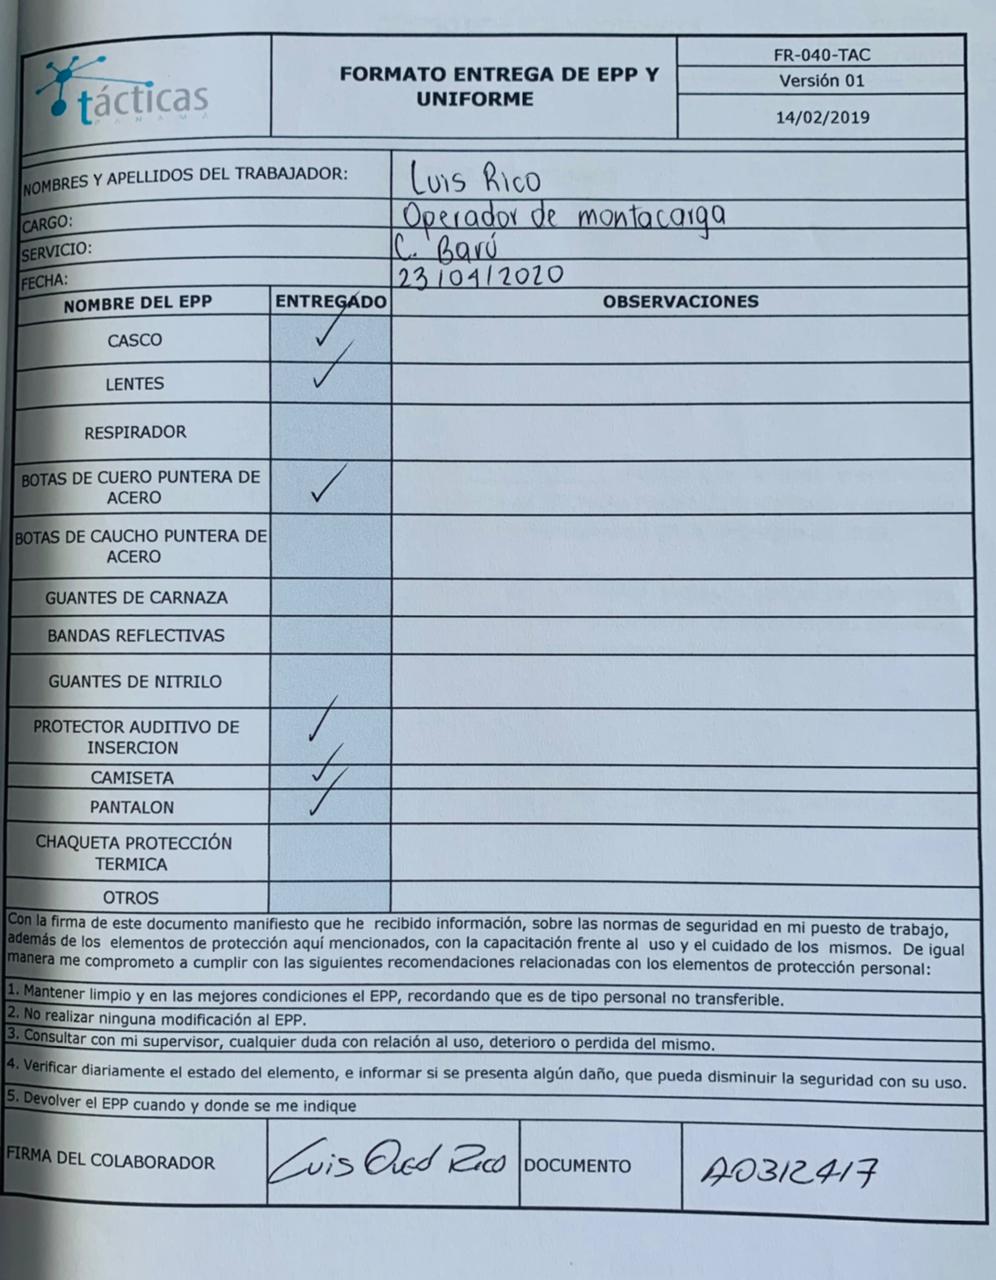 tácticas
PANAMÁ
FORMATO ENTREGA DE EPP Y
UNIFORME
FR-040-TAC
Versión 01
14/02/2019
NOMBRES Y APELLIDOS DEL TRABAJADOR: Luis Rico
CARGO: Operador de montacarga
SERVICIO: C. Barú
FECHA: 23/04/2020
NOMBRE DEL EPP ENTREGADO OBSERVACIONES
CASCO ✓
LENTES ✓
RESPIRADOR
BOTAS DE CUERO PUNTERA DE
ACERO ✓
BOTAS DE CAUCHO PUNTERA DE
ACERO
GUANTES DE CARNAZA
BANDAS REFLECTIVAS
GUANTES DE NITRILO
PROTECTOR AUDITIVO DE
INSERCION ✓
CAMISETA ✓
PANTALON ✓
CHAQUETA PROTECCIÓN
TERMICA
OTROS
Con la firma de este documento manifiesto que he recibido información, sobre las normas de seguridad en mi puesto de trabajo,
además de los elementos de protección aquí mencionados, con la capacitación frente al uso y el cuidado de los mismos. De igual
manera me comprometo a cumplir con las siguientes recomendaciones relacionadas con los elementos de protección personal:
1. Mantener limpio y en las mejores condiciones el EPP, recordando que es de tipo personal no transferible.
2. No realizar ninguna modificación al EPP.
3. Consultar con mi supervisor, cualquier duda con relación al uso, deterioro o perdida del mismo.
4. Verificar diariamente el estado del elemento, e informar si se presenta algún daño, que pueda disminuir la seguridad con su uso.
5. Devolver el EPP cuando y donde se me indique
FIRMA DEL COLABORADOR Luis Rico DOCUMENTO AO312417